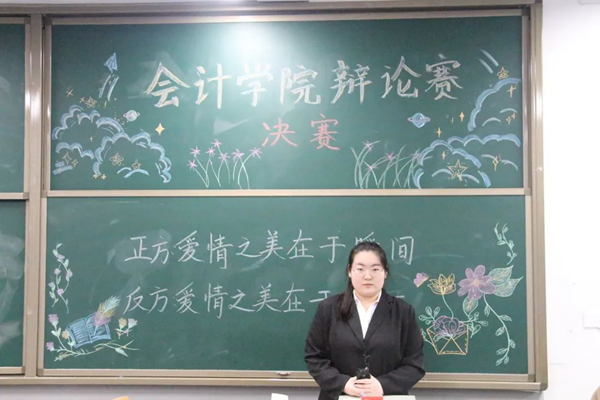 会计学院辩论赛
决赛
正方爱情之美在于瞬间
反方爱情之美在于